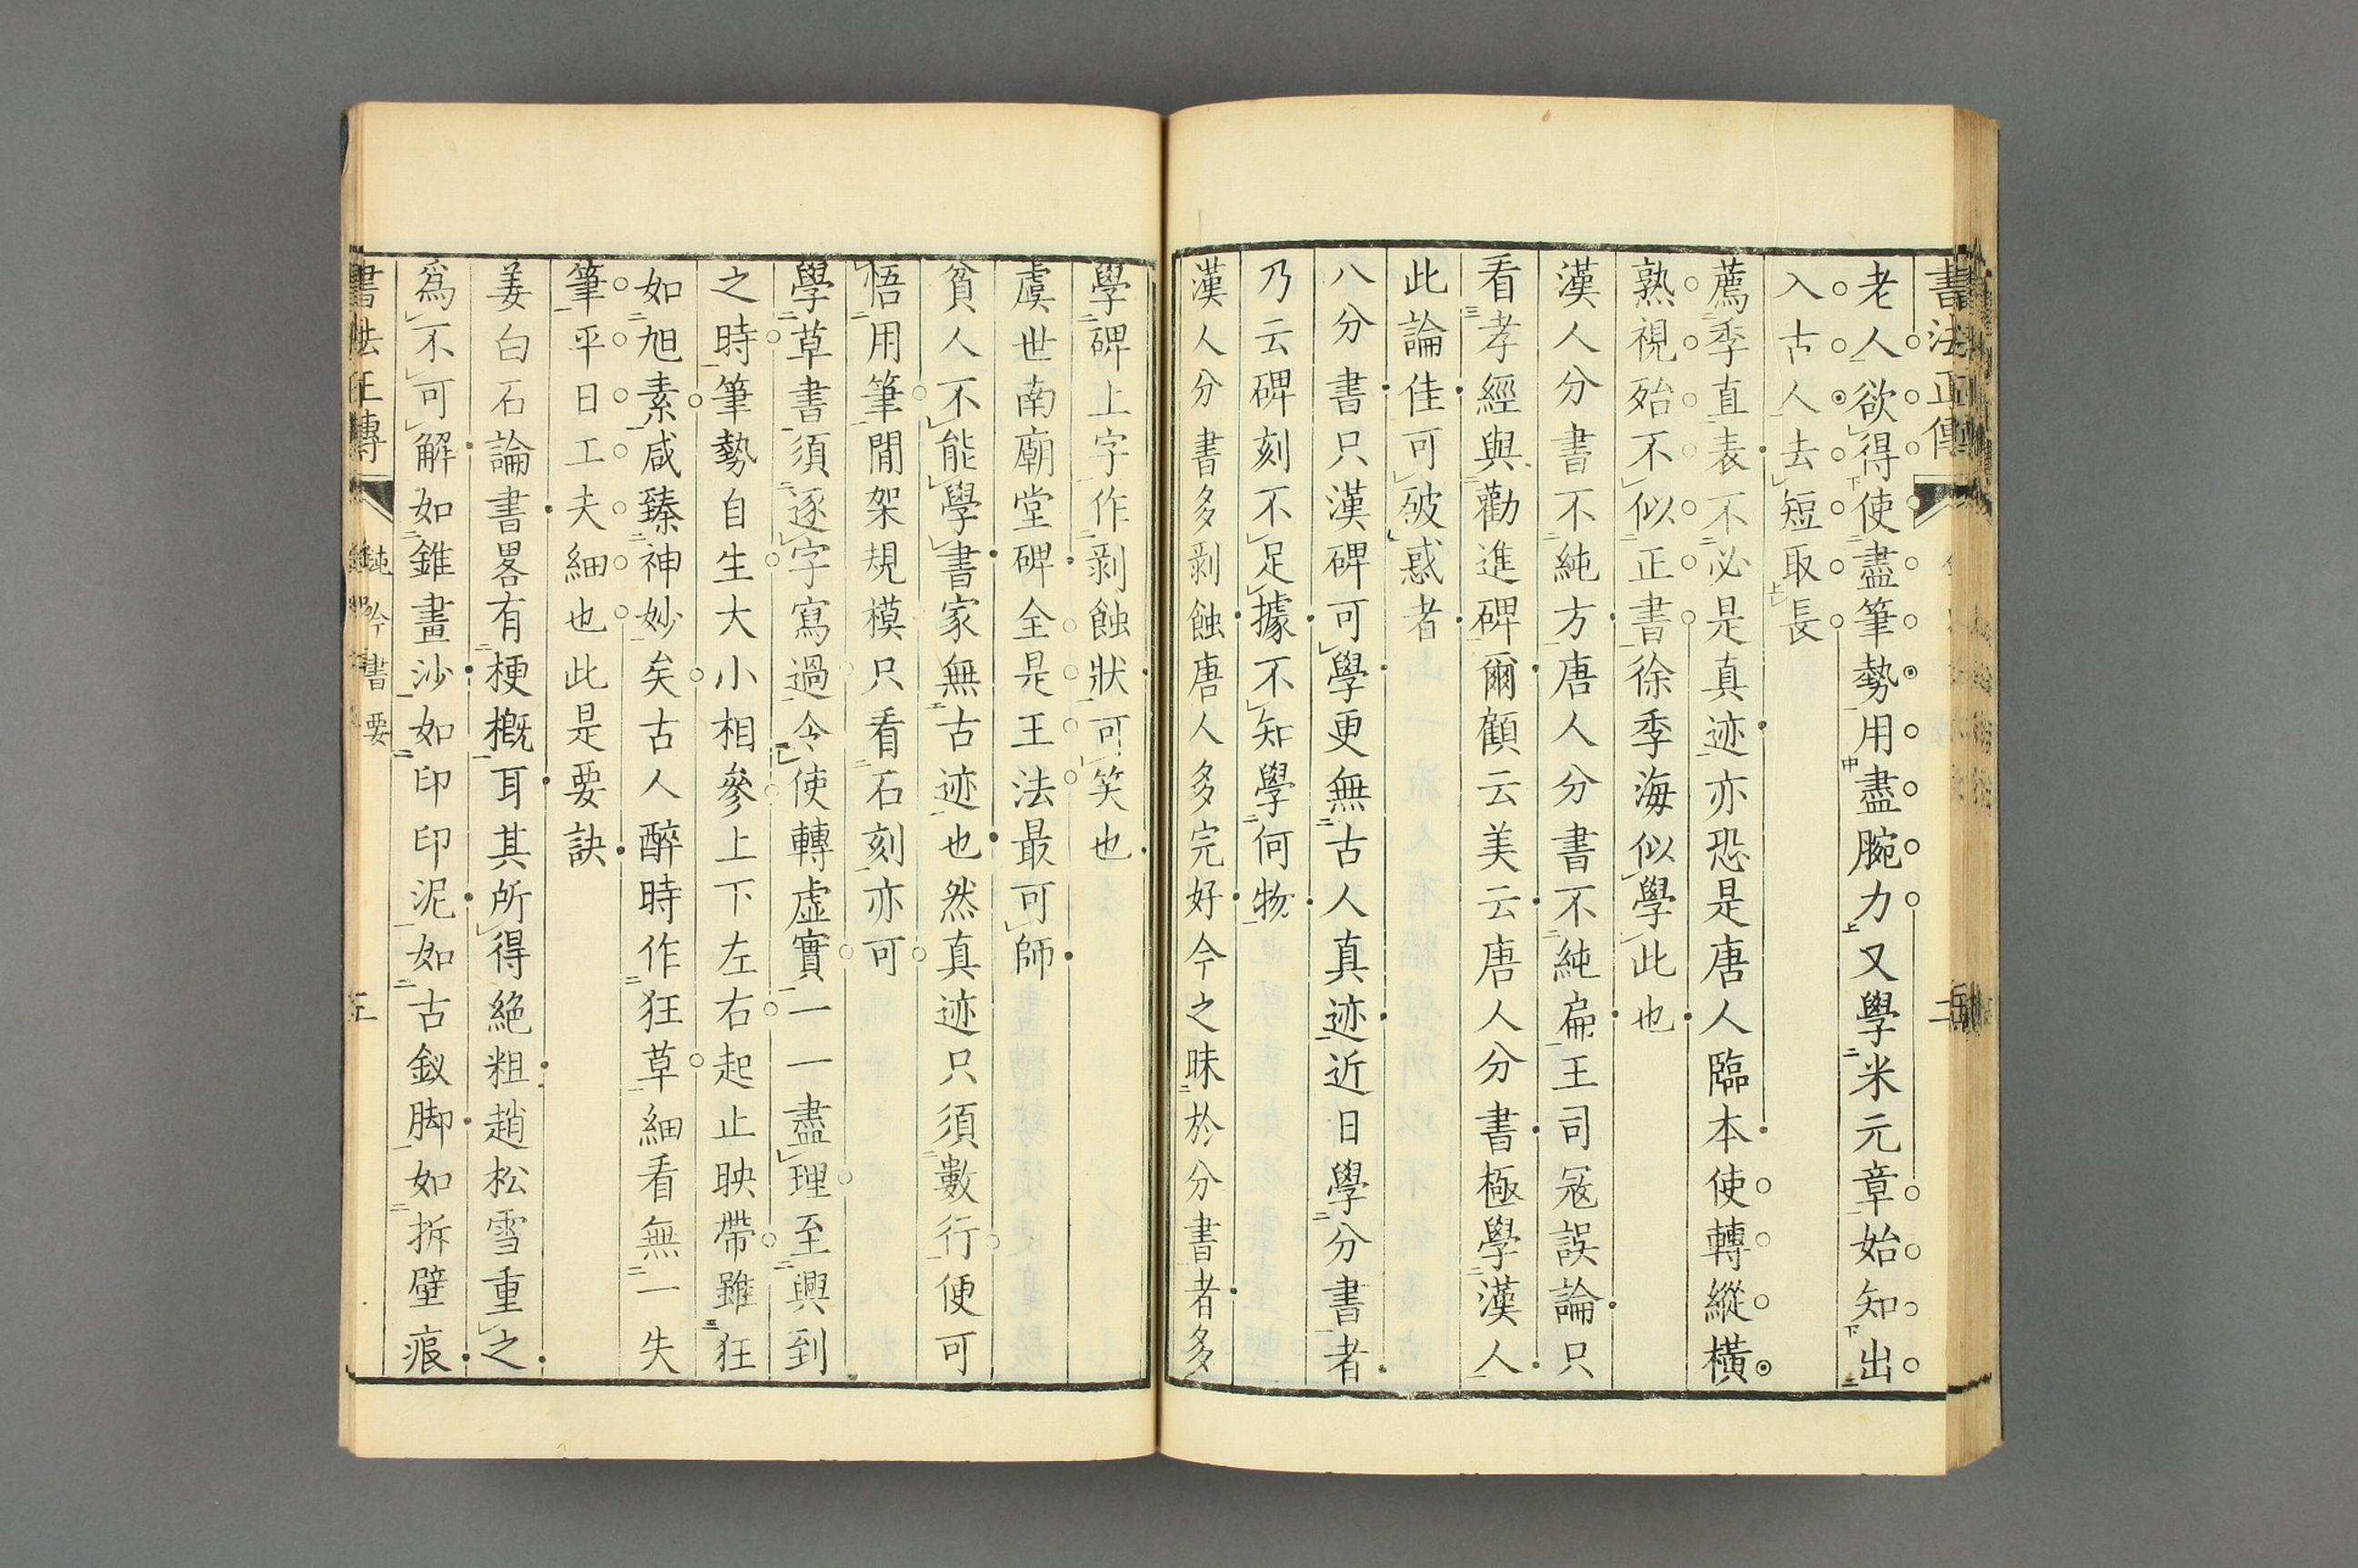 書法正傳
老人欲得使盡筆勢用盡腕力又學米元章始知出
入古人去短取長
薦季直表不必是真迹亦恐是唐人臨本使轉縱橫
熟視殆不似正書徐季海似學此也
漢人分書不純方唐人分書不純扁王司寇誤論只
看孝經與勸進碑爾顧云美云唐人分書極學漢人
此論佳可破惑者
八分書只漢碑可學更無古人真迹近日學分書者
乃云碑刻不足據不知學何物
漢人分書多剥蝕唐人多完好今之昧於分書者多
學碑上字作剥蝕狀可笑也
虞世南廟堂碑全是王法最可師
貧人不能學書家無古迹也然真迹只須數行便可
悟用筆間架規模只看石刻亦可
學草書須逐字寫過令使轉虛實一一盡理至興到
之時筆勢自生大小相參上下左右起止映帶雖狂
如旭素咸臻神妙矣古人醉時作狂草細看無一失
筆平日工夫細也此是要訣
姜白石論書畧有梗概耳其所得絶粗趙松雪重之
爲不可解如錐畫沙如印印泥如古釵脚如拆壁痕
書法正傳
純吟書要
三